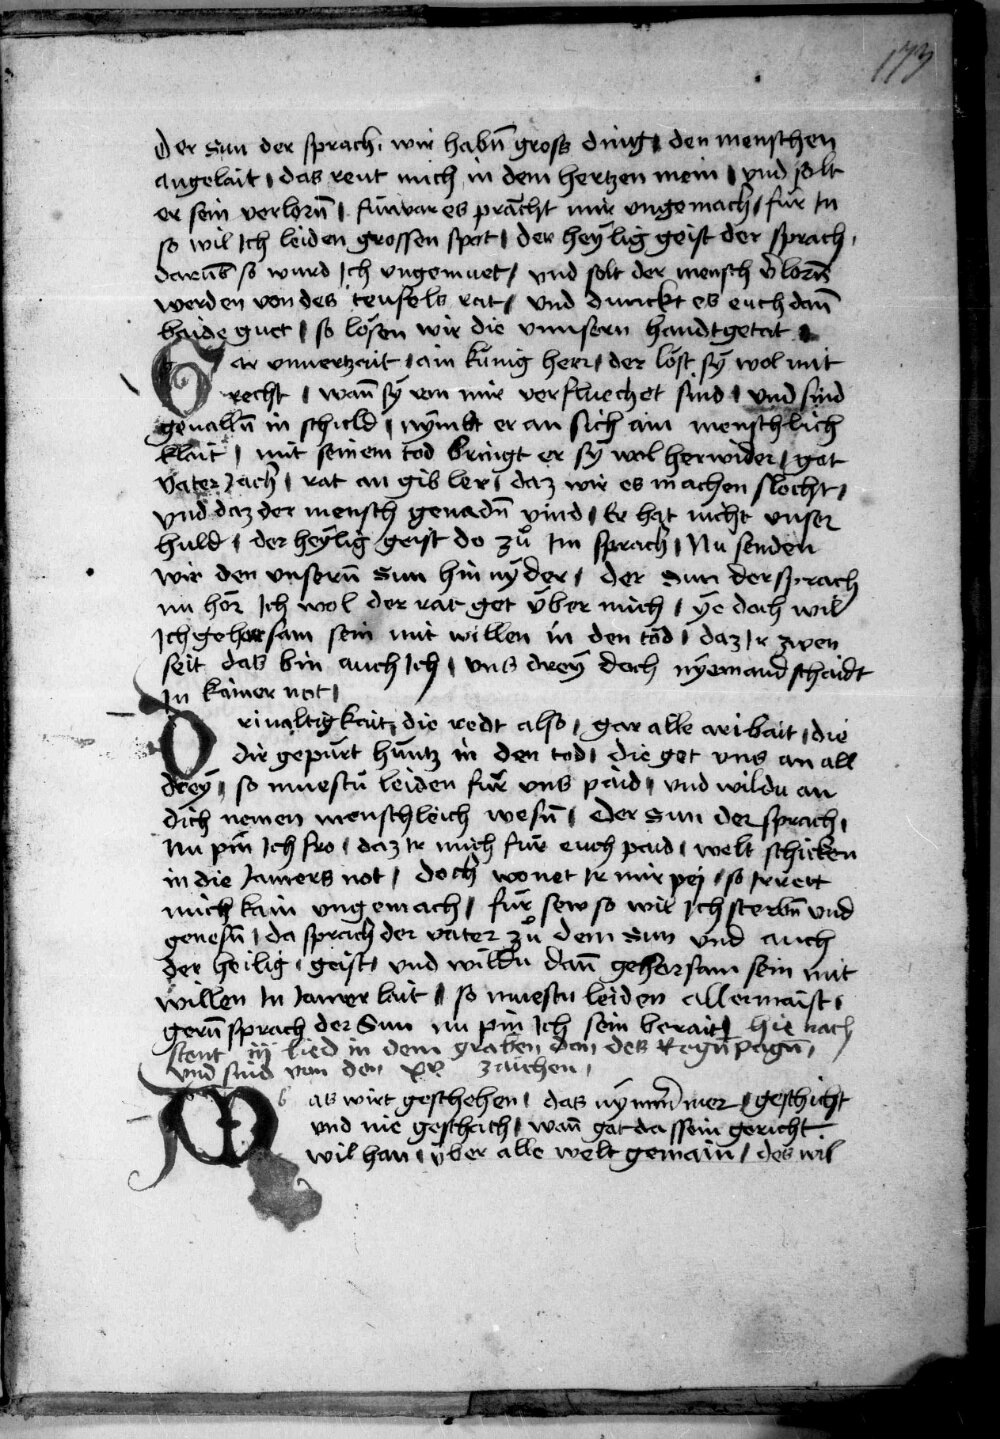 173
Der Sun der sprach, wir habn̄ gross ding, den menschen
angelait, das reut mich in dem hertzen mein, vnd solt
er sein verlorn̄, fürwar es prächt mir vngemach, für In
so wil Ich leiden grossen spot, der heÿlig geist der sprach,
darūb so wurd Ich vngemuet, vnd solt der mensch v̄lorn̄
werden von des teufels rat, vnd dunckt es euch dan̄
baide guet, so lösen wir die vnnsern handtgetat,
Gar vnuertzait, ain künig herr, der löst sÿ wol mit
recht, wan̄ sÿ von mir verfluechet sind, vnd sind
geualln̄ in schuld, nÿmbt er an sich ain menschlich
klait, mit seinem tod bringt er sÿ wol herwider, got
vater Iach, rat an gib ler, daz wir es machen slecht,
vnd daz der mensch genadn̄ vind, Er hat nicht vnser
huld, der heÿlig geist do zů Im sprach, Nu senden
wir den vnsern̄ Sun hin nÿder, der Sun der sprach
nu hör Ich wol der rat get über mich, ÿe doch wil
Ich gehorsam sein mit willen in den tod, daz Ir zwen
seit das bin auch Ich, vns dreÿ doch nÿemand schaidt
In kainer not,
Driualtigkait die redt also, gar alle aribait, die
dir gepürt huntz in den tod, die get vns an all
dreÿ, so muestu leiden für vns paid, vnd wildu an
dich nemen menschleich wesn̄, Der Sun der sprach,
Nu pin Ich fro, daz Ir mich für euch paid, welt schicken
in die Iamers not, doch wonet Ir mir pej, so Irrett
mich kain vngemach, für sew so wil Ich sterbn̄ vnd
genesn̄, da sprach der vater zů dem Sun vnd auch
der heilig, geist, vnd wildu dan̄ gehorsam sein mit
willen In Iamer lait, so muestu leiden allermaist,
gern̄ sprach der Sun nu pin Ich sein berait, hie nach
stent iij lied in dem graben don des Regn̄pagn̄,
vnd sind von den xv zaichen,
Was wirt geschehen, das nÿmmer mer, geschicht
vnd nie geschach, wan̄ got da ssein gericht
wil han, über alle welt gemain, des wil